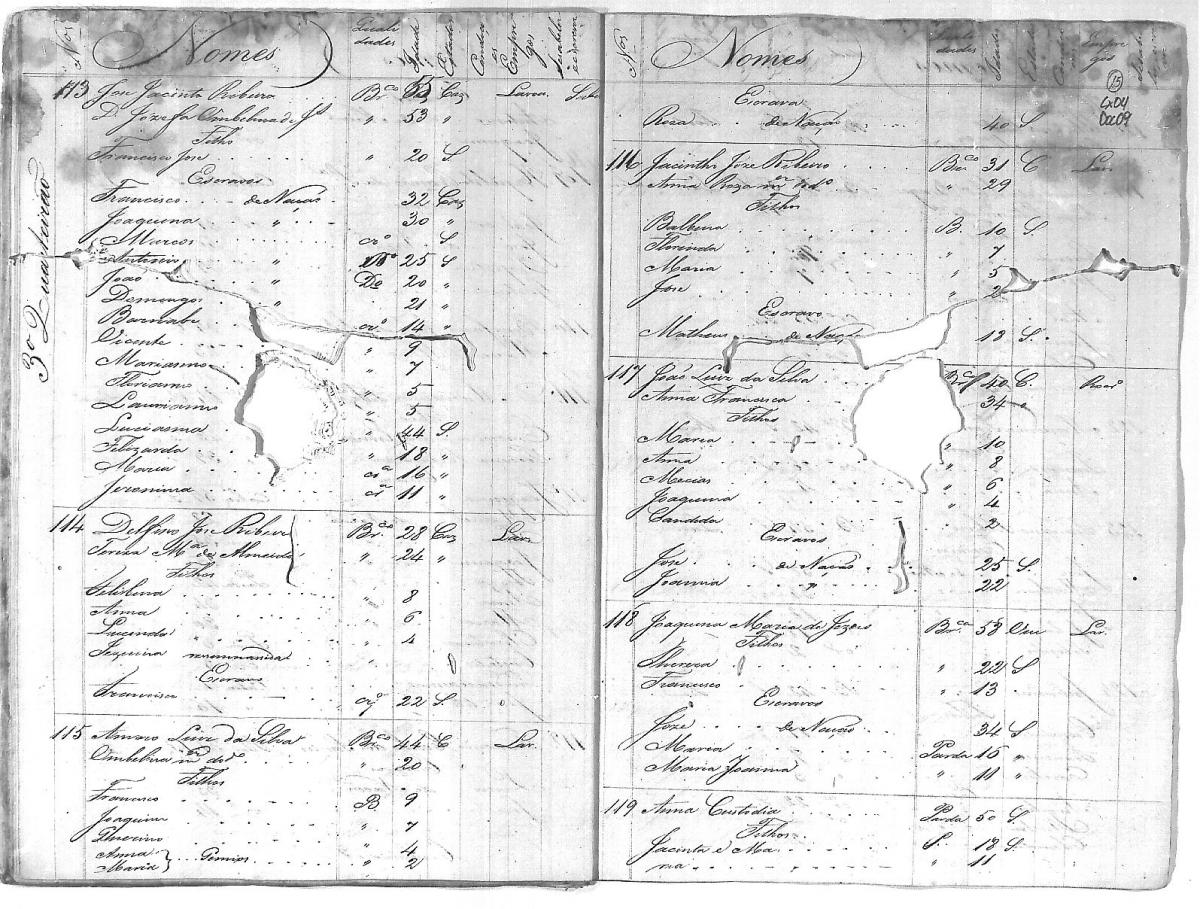 Nos Nomes Quali dades Idades Estados Empre gos
3o Quarteirão
113 Jose Jacinto Ribeiro Br.co 55 Caz Lavra
D. Jozefa Umbelina de Js " 53 "
Filho
Francisco Jose " 20 S
Escravos
Francisco de Nação 32 Caz
Joaquina " 30 "
Marcos cro S
Antonio " 25 S
João " Do 20 "
Domingos " 21 "
Barnabe cro 14 "
Vicente " 9
Marianno " 7
Floriano " 5
Lauriano " 5
Luciana 44 S.
Felizarda " 18 "
Maria cra 16 "
Jeronima cra 11 "
114 Delfino Jose Ribeiro Br.co 28 Caz Lavr.
Tereza Ma de Almeida " 24 "
Filhos
" 8
Anna " 6
Lucinda " 4
Escravo
Francisca 22 S.
115 Luiz da Silva Br.co 44 C Lav.
Umbelina 20
Filhos
Francisco B 9
Joaquim " 7
Anna } Gemios " 4
Maria } " 2
Nos Nomes Idades Empre gos
15
Cx04
Doc09
Escrava
Roza de Nação 40 S.
116 Jacintho Joze Ribeiro Br.co 31 C Lav.
Anna Roza " 29
Filhos
Balbina B. 10 S.
Florinda " 7
Maria " 5
Jose " 2
Escravo
Matheus de Nação 18 S.
117 João Luiz da Silva Br.co 40 C.
Anna Francisca 34
Filhos
Maria " 10
Anna " 8
Mecias " 6
Joaquina " 4
Candida 2
Escravos
Jose de Nação 25 S.
Joanna " 22
118 Joaquina Maria de Jezus Br.ca 58 Lav.
Filhos
Thereza " 22 S
Francisco " 13
Escravos
Joze de Nação 34 S
Maria Parda 16 "
Maria Joanna " 11 "
119 Anna Custodia Parda 50 S.
Filhos
Jacinta e Ma- 12 S.
ria " 11